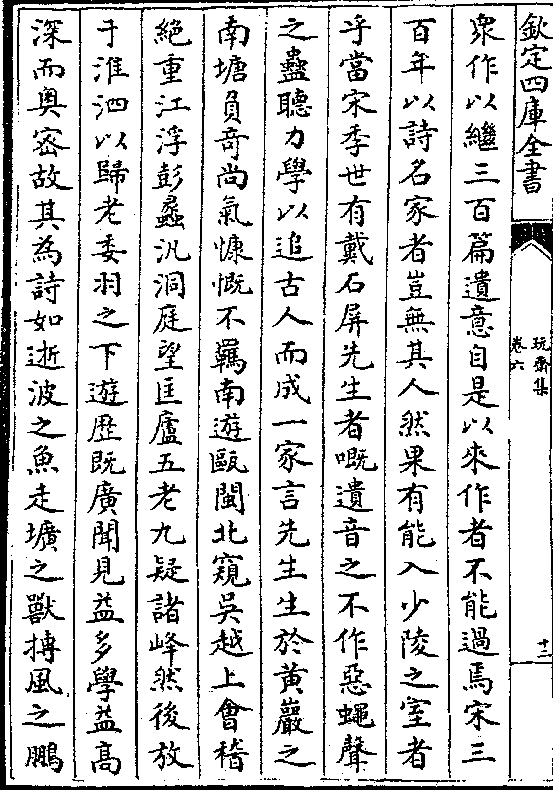 欽定四庫全書
玩齋集
卷六
十二
衆作以繼三百篇遺意自是以來作者不能過焉宋三
百年以詩名家者豈無其人然果有能入少陵之室者
乎當宋季世有戴石屏先生者嘅遺音之不作惡蠅聲
之蠱聽力學以追古人而成一家言先生生於黃巖之
南塘負竒尚氣慷慨不羈南遊甌閩北窺吳越上會稽
絶重江浮彭蠡汎洞庭望匡廬五老九疑諸峰然後放
于淮泗以歸老委羽之下遊歴既廣聞見益多學益高
深而奧宻故其為詩如逝波之魚走壙之獸摶風之鵬